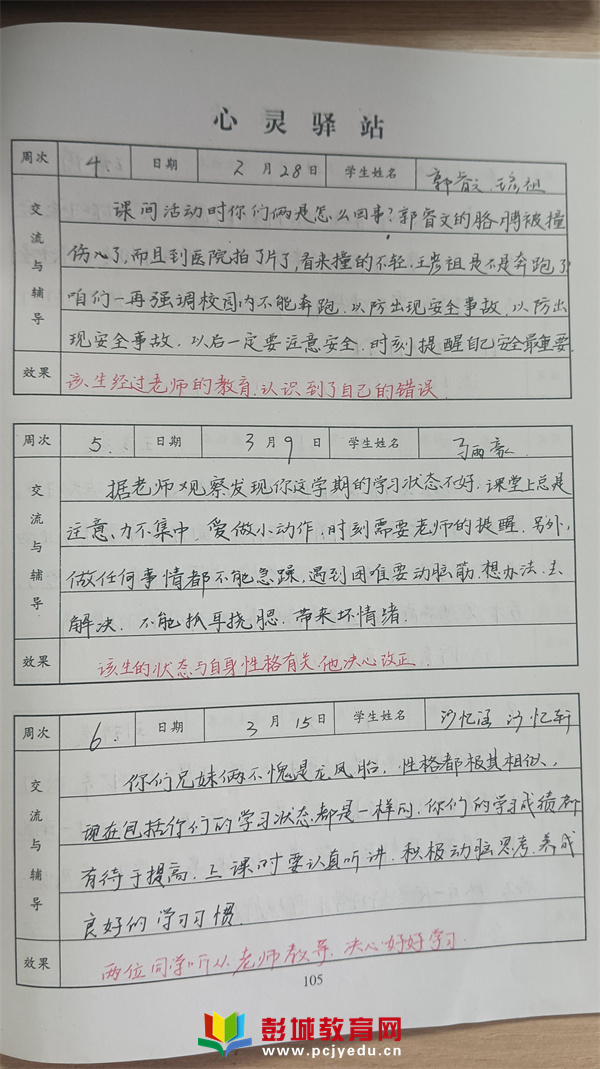 心灵驿站
周次 4. 日期 2月28日 学生姓名 郭睿文 彦祖
交流与辅导
课间活动时你们俩是怎么回事?郭睿文的胳膊被撞
伤了,而且到医院拍了片了,看来撞的不轻.王彦祖是不是奔跑了?
咱们一再强调校园内不能奔跑.以防出现安全事故,以防出
现安全事故.以后一定要注意安全.时刻提醒自己安全最重要.
效果 该生经过老师的教育.认识到了自己的错误.
周次 5. 日期 3月9日 学生姓名
交流与辅导
据老师观察发现你这学期的学习状态不好.课堂上总是
注意力不集中,爱做小动作,时刻需要老师的提醒.另外,
做任何事情都不能急躁,遇到困难要动脑筋.想办法.去
解决.不能抓耳挠腮.带来坏情绪.
效果 该生的状态与自身性格有关他决心改正.
周次 6. 日期 3月15日 学生姓名 沙忆涵 沙忆轩
交流与辅导
你们兄妹俩不愧是龙凤胎.性格都极其相似,
现在包括你们的学习状态都是一样的.你们的学习成绩都
有待于提高.上课时要认真听讲.积极动脑思考.养成
良好的学习习惯.
效果 两位同学听从老师教导.决心好好学习.
105
彭城教育网
www.pcjyedu.cn